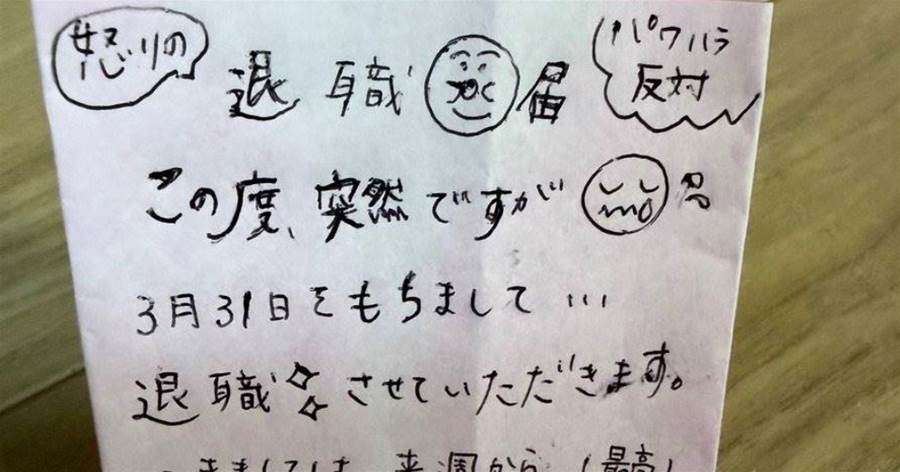 怒りの
退職届
パワハラ
反対
この度、突然ですが
3月31日をもちまして…
退職させていただきます。
つきましては、来週から(最高)